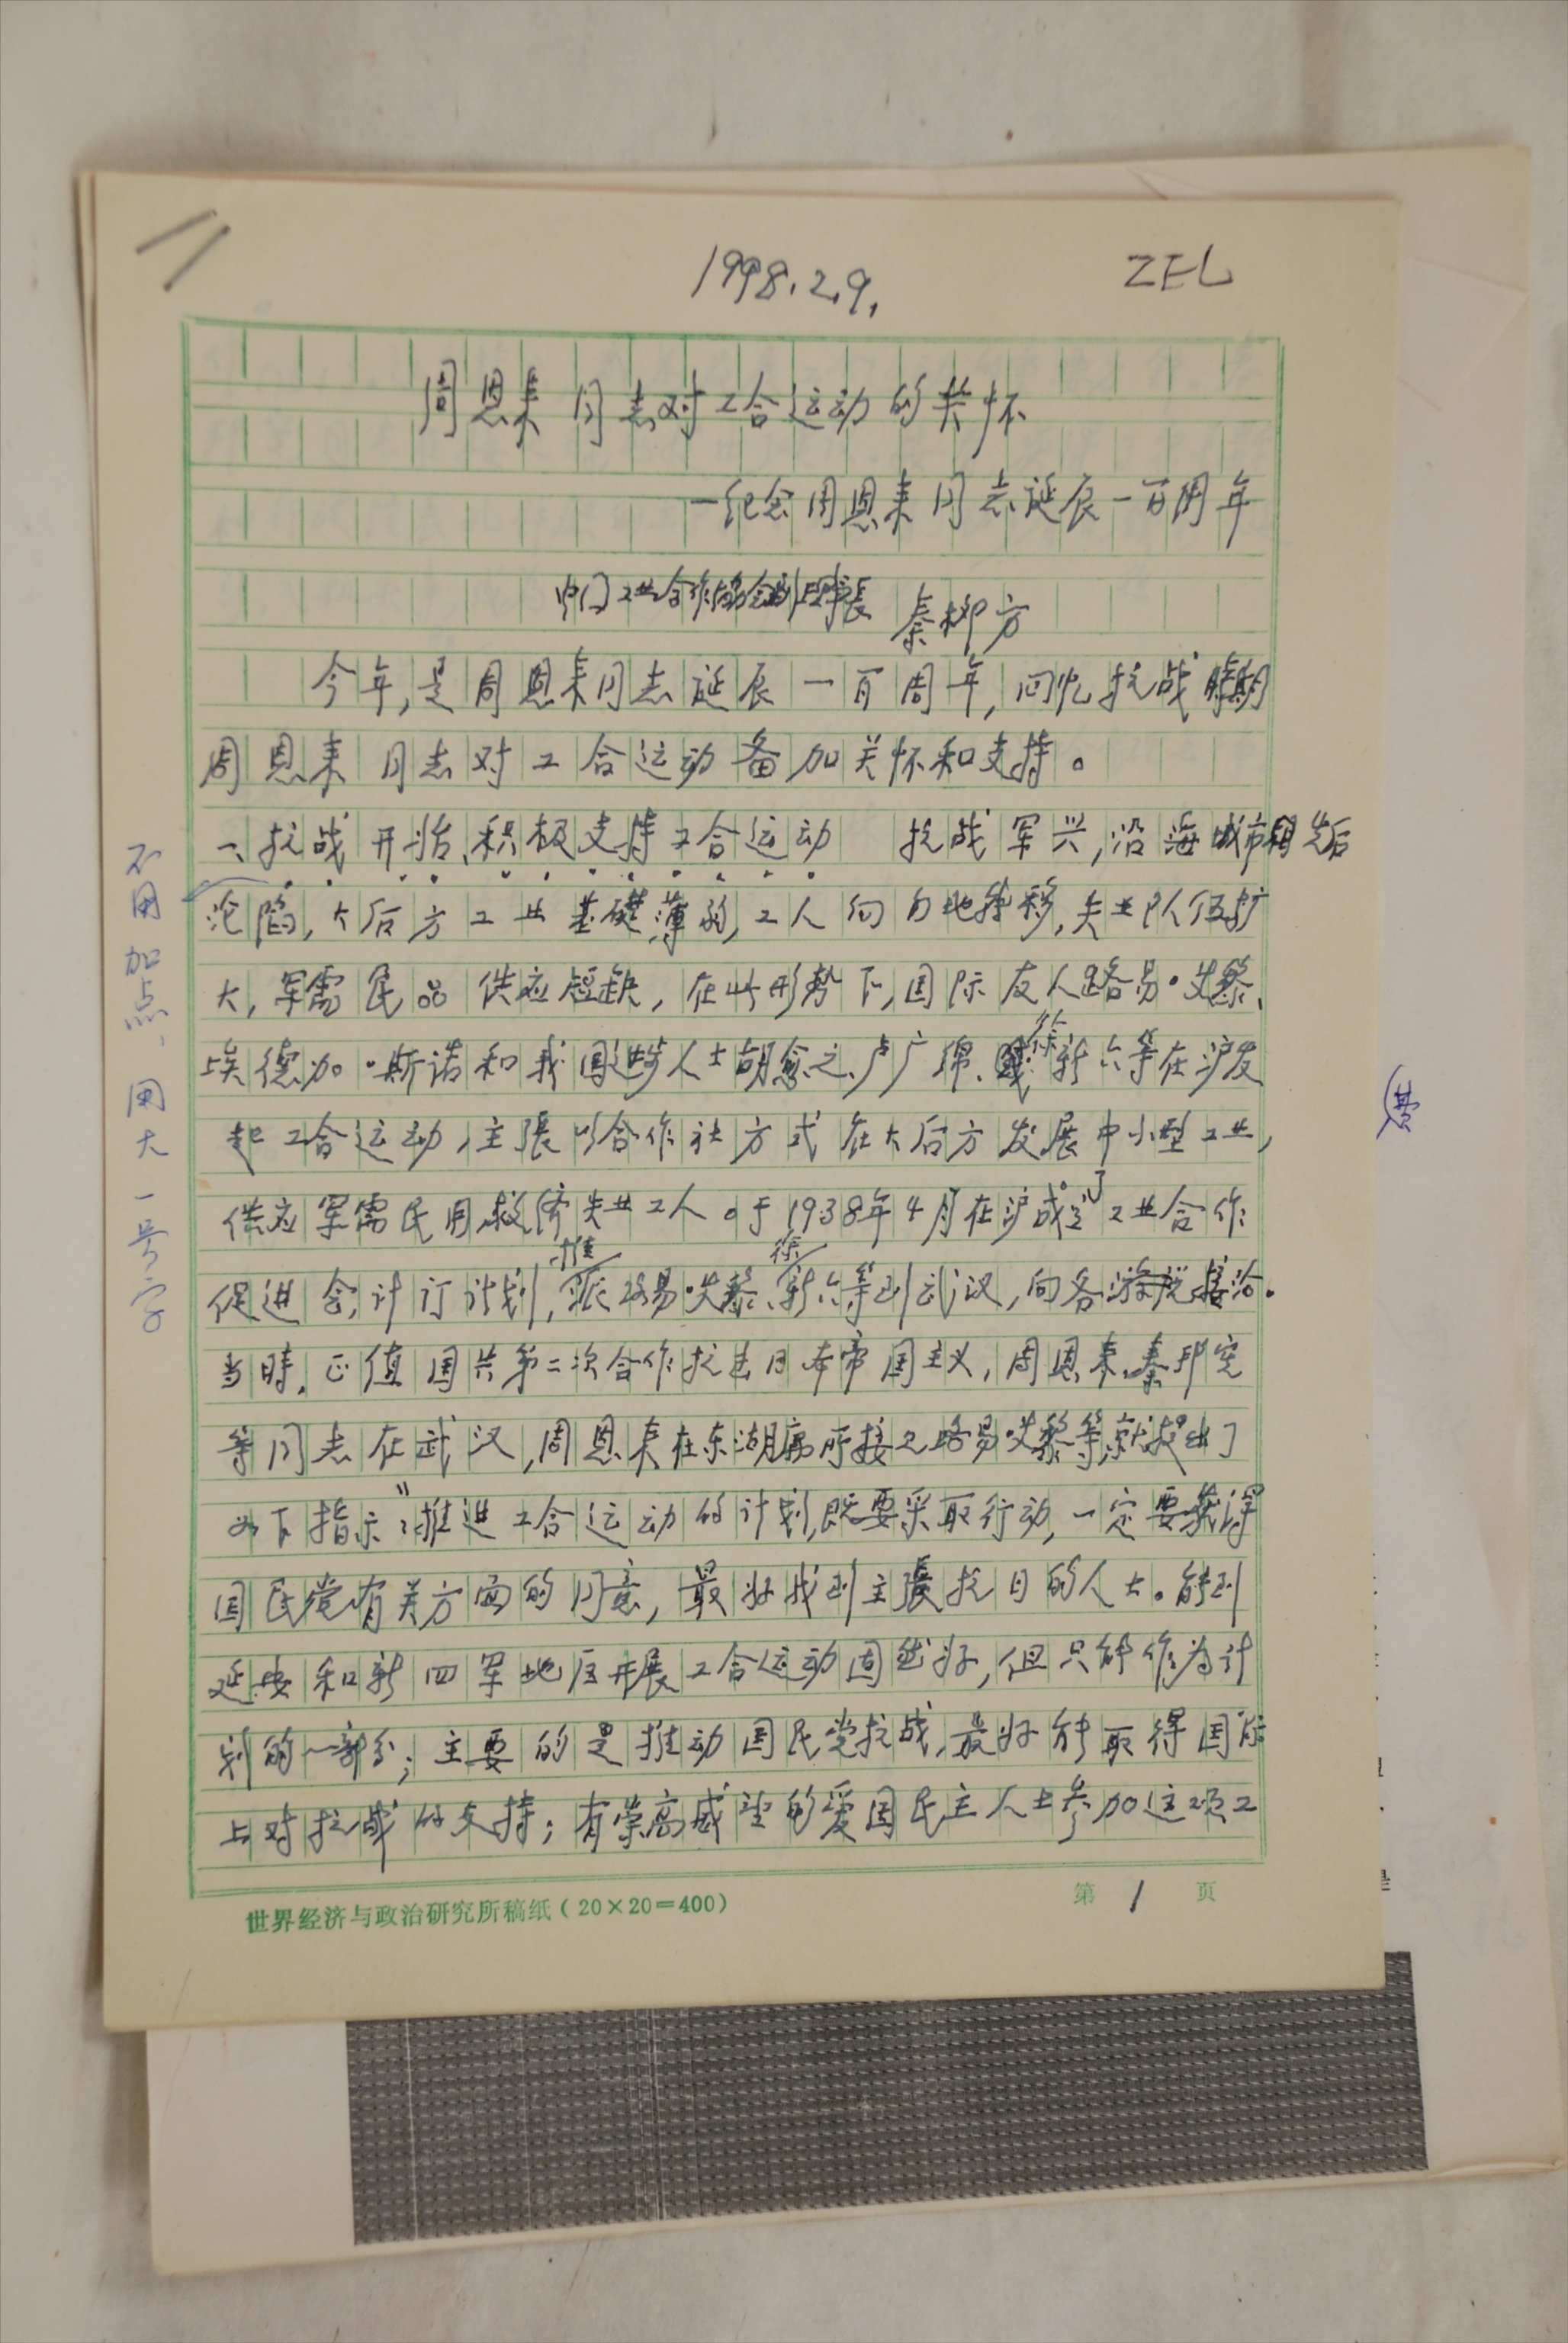 1998.2.9.
ZEL
周恩来同志对工合运动的关怀
—纪念周恩来同志诞辰一百周年
工业合作协会副理事長 秦柳方
今年,是周恩来同志诞辰一百周年,回忆抗战時期
周恩来同志对工合运动备加关怀和支持。
一、抗战开始、积极支持工合运动 抗战军兴,沿海城市相先后
沦陷,大后方工业基礎薄弱,工人向内地转移,失业队伍扩
大,军需民品供应短缺,在此形势下,国际友人路易·艾黎、
埃德加·斯诺和我国进步人士胡愈之、卢广绵、徐新六等在沪发
起工合运动,主張以合作社方式在大后方发展中小型工业,
供应军需民用,救济失业工人。于1938年4月在沪成立了工业合作
促进会,计订计划,推派路易·艾黎、徐新六等到武汉,向各接洽。
当時,正值国共第二次合作抗击日本帝国主义,周恩来、秦邦宪
等同志在武汉,周恩来在东湖寓所接见路易·艾黎等,就提出了
如下指示:"推进工合运动的计划,既要采取行动,一定要获得
国民党有关方面的同意,最好找到主張抗日的人士。能到
延安和新四军地区开展工合运动固然好,但只能作为计
划的一部分;主要的是推动国民党抗战,最好能取得国际
上对抗战的支持;有崇高威望的爱国民主人士参加这项工
世界经济与政治研究所稿纸(20×20=400)
第 1 页
不用加点,用大一号字